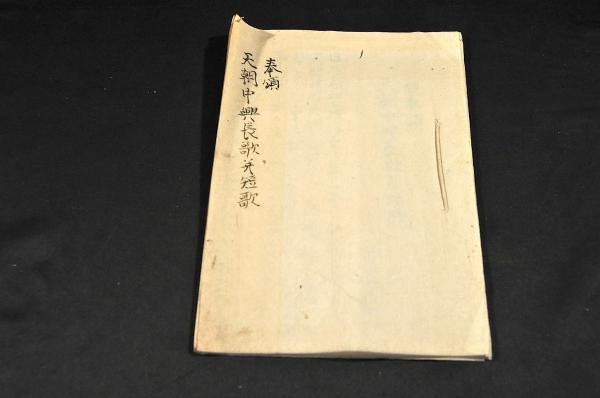 奉頌
天朝中興長歌并短歌